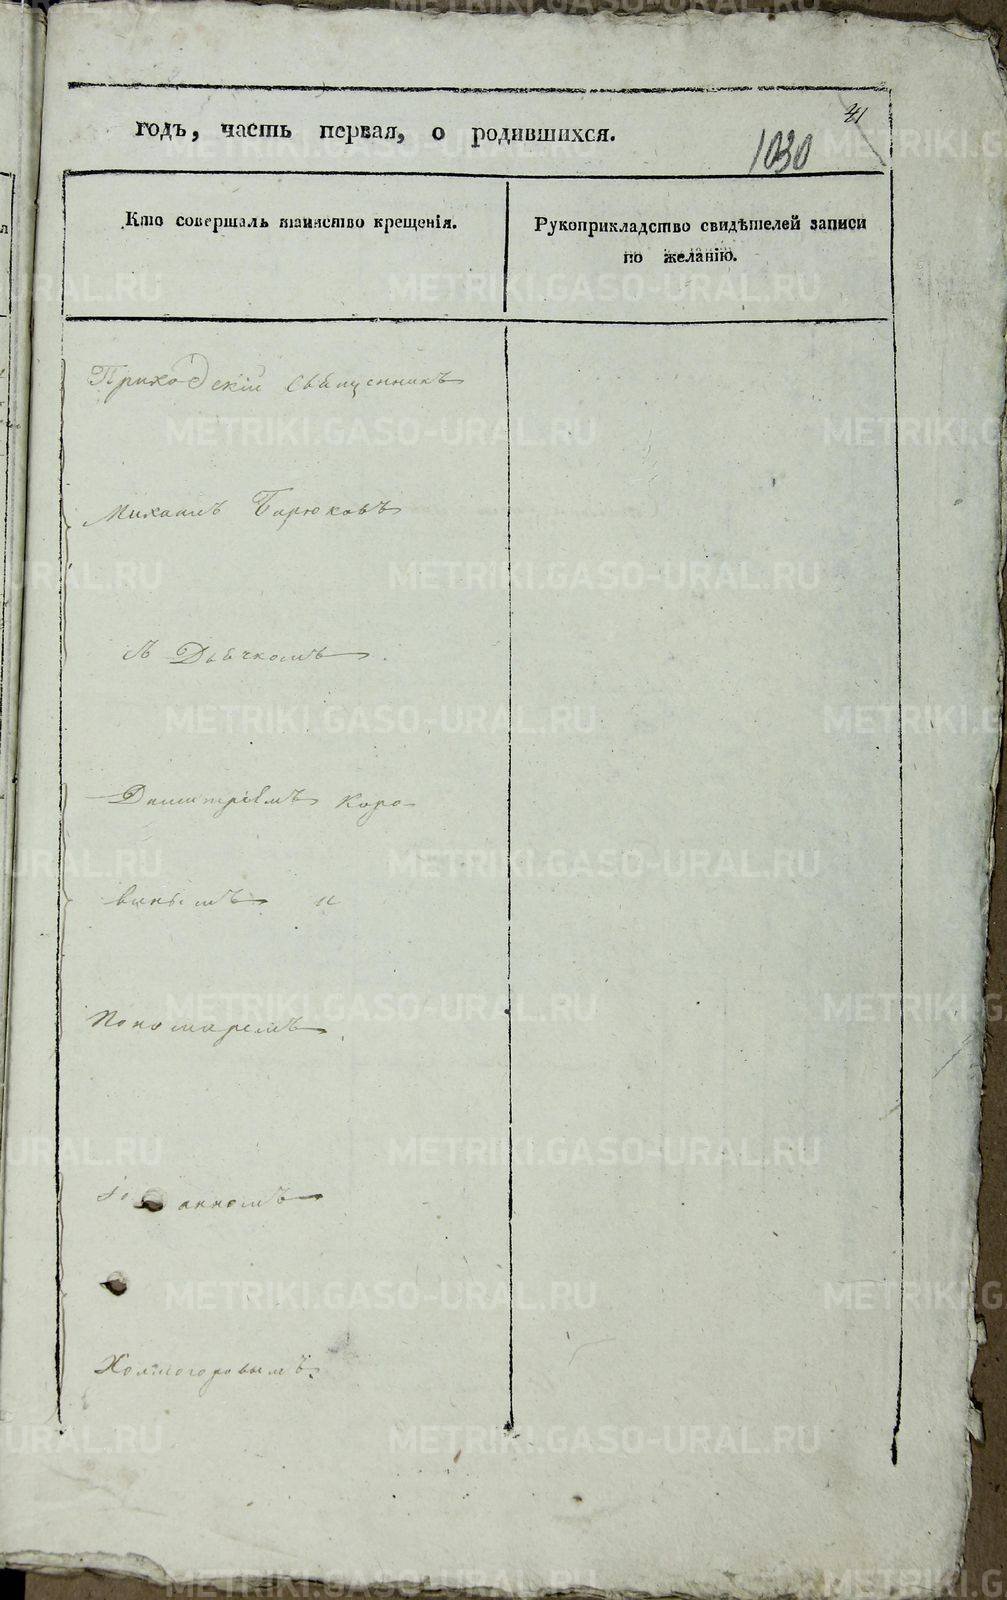 41
годъ, часть первая, о родившихся.
1030
Кто совершалъ таинство крещенія.
Рукоприкладство свидѣтелей записи
по желанію.
Приходскій Священникъ
Михаилъ Бирюковъ
съ Дьячкомъ
Димитріемъ Коро-
винымъ и
Пономаремъ
Іоанномъ
Холмогоровымъ.
METRIKI.GASO-URAL.RU